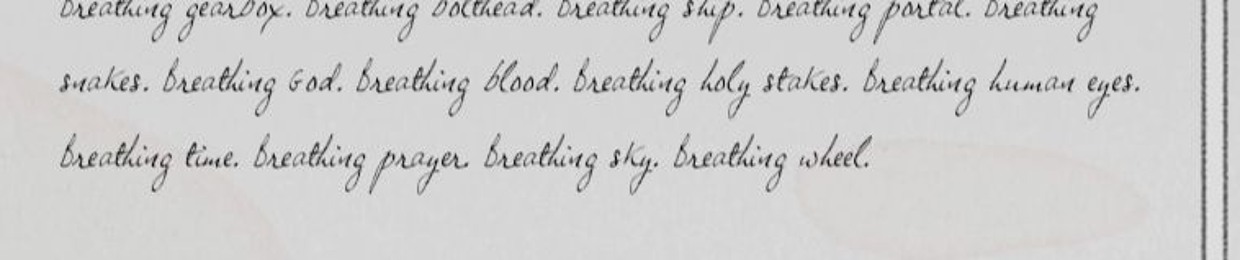 breathing gearbox. breathing bolthead. breathing ship. breathing portal. breathing
snakes. breathing God. breathing blood. breathing holy stakes. breathing human eyes.
breathing time. breathing prayer. breathing sky. breathing wheel.